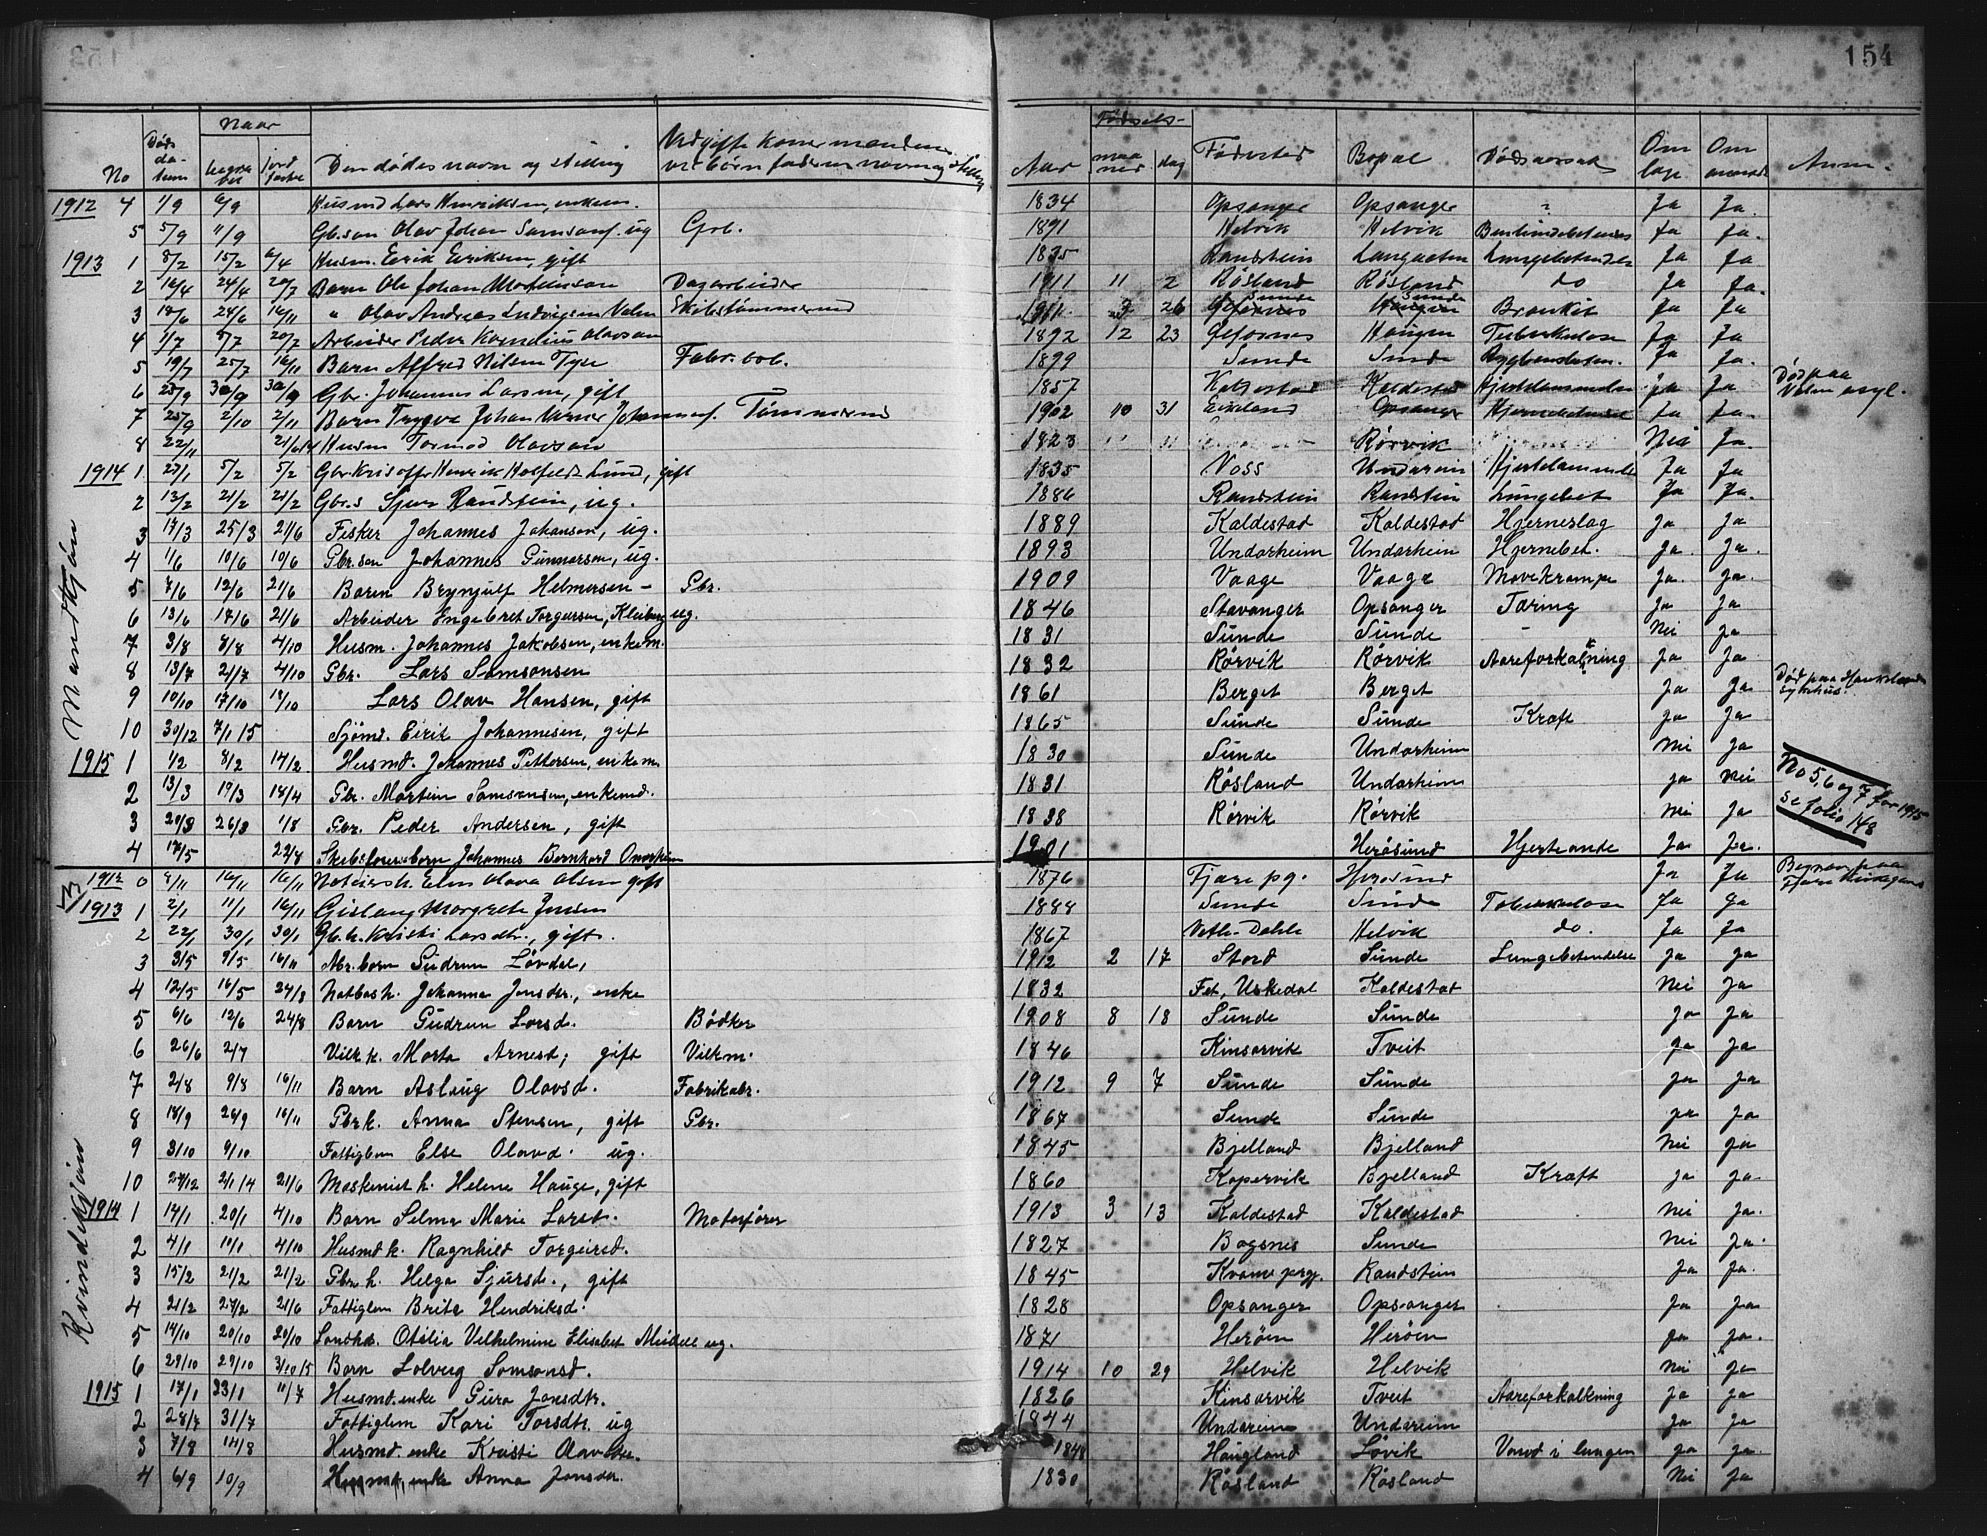 154
No | Døds da- tum | Naar begra- vet | jord fæstet | Den dødes navn og stilling | Ved gifte koner mandens, ved børn faderens navn og stilling | Aar | Fødsels- maa ned | dag | Fødested | Bopæl | Dødsaarsak | Om læge | Om anmeldt | Anm.
Mandkjøn
1912 4 1/9 6/9 Husmd Lars Henriksen, enkem. 1834 Opsanger Opsanger Ja Ja
5 5/9 11/9 Gb.søn Olav Johan Samsons. ug Grb. 1891 Helvik Helvik Ja Ja.
1913 1 8/2 15/2 6/4 Husm. Eirik Eiriksen, gift 1835 Randstein Lungebetendelse Ja Ja
2 16/4 24/4 20/7 Barn Ole Johan Mortensson Dagarbeider 1911 11 2 Røsland Røsland do Ja Ja.
3 18/6 24/6 16/11 " Olav Andreas Ludvigsen Valen Skibstømmermd 1911 9 26 Sunde Sunde Bronkit Ja Ja
4 1/7 5/7 20/7 Arbeider Peder Kornelius Olavson 1892 12 23 Haugen Tuberkulose Ja Ja
5 19/7 25/7 16/11 Barn Alfred Nilsen Tyse Fabr.arb. 1899 Sunde Sunde Ja Ja.
6 25/9 30/9 30/9 Gbr. Johannes Larsen, gift 1857 Kaldestad Kaldestad Ja Ja Død paa Valen asyl.
7 25/9 2/10 2/11 Barn Trygve Johan Verner Johannes. Tømmermd 1902 10 31 Opsanger Ja Ja.
8 22/11 21/6 14 Husm Tormod Olavson 1823 Rørvik Nei Ja.
1914 1 5/2 5/2 Gbr. Kristoffer Henrik Hosfeldt Lund, gift 1835 Voss Undareim Hjertelammelse Ja Ja
2 13/2 21/2 21/2 Gbr.s Sjur Randstein, ug. 1886 Randstein Randstein Lungebet Ja Ja.
3 17/3 25/3 21/6 Fisker Johannes Johanson, ug. 1889 Kaldestad Kaldestad Hjerneslag Ja Ja
4 1/6 10/6 10/6 Gbr.søn Johannes Gunnarsen, ug. 1893 Undarheim Undarheim Hjernebet. Ja. Ja.
5 7/6 12/6 21/6 Barn Brynjulf Helmersen - Gbr. 1909 Vaage Vaage Mavekrampe Ja. Ja.
6 13/6 17/6 21/6 Arbeider Engebret Torgersen, Kleiberg ug. 1846 Stavanger Opsanger Tæring Ja Ja
7 3/8 8/8 4/10 Husm. Johannes Jakobsen, enkem. 1831 Sunde Sunde - Nei Ja
8 13/7 21/7 4/10 Gbr. Lars Samsonsen 1832 Rørvik Rørvik Aareforkalkning Ja Ja
9 10/10 17/10 18/10 Lars Olav Hansen, gift 1861 Berget Berget Ja Ja Død paa Haukelands sykehus.
10 30/12 7/1 15 Sjømd. Eirik Johannesen, gift 1865 Sunde Sunde Kræft Ja Ja
1915 1 1/2 8/2 14/2 Husmd. Johannes Pettersen, enkem 1830 Sunde Undarheim Nei Ja
2 13/3 19/3 18/4 Gbr. Martin Samsonsen, enkemd. 1831 Røsland Undarheim Ja Nei
No 5, 6 og 7 for 1915 se folio 148
3 20/3 26/3 1/8 Gbr. Peder Andersen, gift 1838 Rørvik Rørvik Nei Ja
4 17/5 22/8 Skibsførersbarn Johannes Bernhard Onarheim 1901 Herøsund Ja Ja.
Kvindekjøn
1912 0 9/11 16/11 16/11 Elen Olava Olsen gift 1876 Fjære pg. Herøsund Ja Ja Begravet paa Fjære kirkegaard
1913 1 2/1 11/1 16/11 Gislaug Margrete Jensen 1888 Sunde Sunde Tuberkulose Ja Ja
2 22/1 30/1 30/1 Gb.k. Kristi Larsdtr., gift. 1867 Vetle-Dahle Helvik do. Ja Ja
3 3/5 9/5 16/11 Gudrun Løvdal, 1912 2 17 Stord Sunde Lungebetendelse Ja Ja
4 12/5 16/5 24/8 Johanna Jonsdtr., enke 1832 Fet, Uskedal Kaldestad Nei Ja
5 6/6 12/6 24/8 Barn Gudrun Larsd. Bødker 1908 8 18 Sunde Sunde Ja Ja
6 26/6 2/7 Vilk k. Marta Arnesd; gift Vilkm. 1846 Kinsarvik Tveit Ja Ja
7 2/8 9/8 16/11 Barn Aslaug Olavsd. Fabrikabr. 1912 9 7 Sunde Sunde Ja Ja
8 18/9 26/9 16/11 Gbr.k. Anna Stensen, gift Gbr. 1867 Sunde Sunde Ja Ja
9 3/10 9/10 Fattiglem Else Olavd. ug. 1845 Bjelland Bjelland Nei Ja
10 27/12 2/1 14 21/6 Maskinist k. Helene Hauge, gift 1860 Kopervik Bjelland Kræft Ja Ja.
1914 1 14/1 20/1 4/10 Barn Selma Marie Larsd. Motorfører 1913 3 13 Kaldestad Kaldestad Nei Ja.
2 4/1 10/1 4/10 Husmd k. Ragnhild Torgeirsd. 1827 Bagsnes Sunde Nei Ja.
3 15/2 21/2 21/2 Gbr.k. Helga Sjursd., gift 1845 Kvams prg. Randstein Ja Ja.
4 21/2 27/2 21/6 Fattiglem Brita Hendriksd. 1828 Opsanger Opsanger Ja Ja
5 14/10 20/10 20/10 Otilia Vilhelmine Elisabet Meidell ug. 1871 Herøen Herøen Ja Ja.
6 29/10 3/10 15 Barn Solveig Samsonsd. 1914 10 29 Helvik Helvik Nei Ja
1915 1 17/1 23/1 11/7 Husmd. enke Guro Jonsdtr. 1826 Kinsarvik Tveit Aareforkalkning Ja Ja
2 28/7 31/7 Fattiglem Kari Torsdtr. ug 1844 Undareim Undareim Ja Ja
3 7/8 14/8 Husmd. enke Kristi Olavsdtr. 1848 Haugland Løvik Vand i lungen Ja Ja.
4 6/9 10/9 Husmd. enke Anna Jonsdtr. 1830 Røsland Røsland Nei Ja